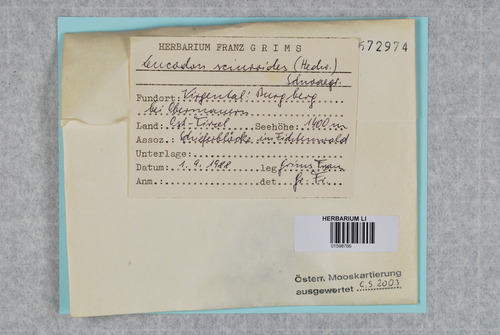 HERBARIUM FRANZ GRIMS
Leucodon sciuroides (Hedw.)
Schwaegr.
572974
Fundort: Virgental: Burgberg
bei Obermauern
Land: Ost-Tirol Seehöhe: 1400 m
Assoz.: Schieferblöcke im Fichtenwald
Unterlage:
Datum: 1. 9. 1988 leg. Grims Franz
Anm.: det. Gr. Fr.
HERBARIUM LI
Österr. Mooskartierung
ausgewertet 6.5.2003